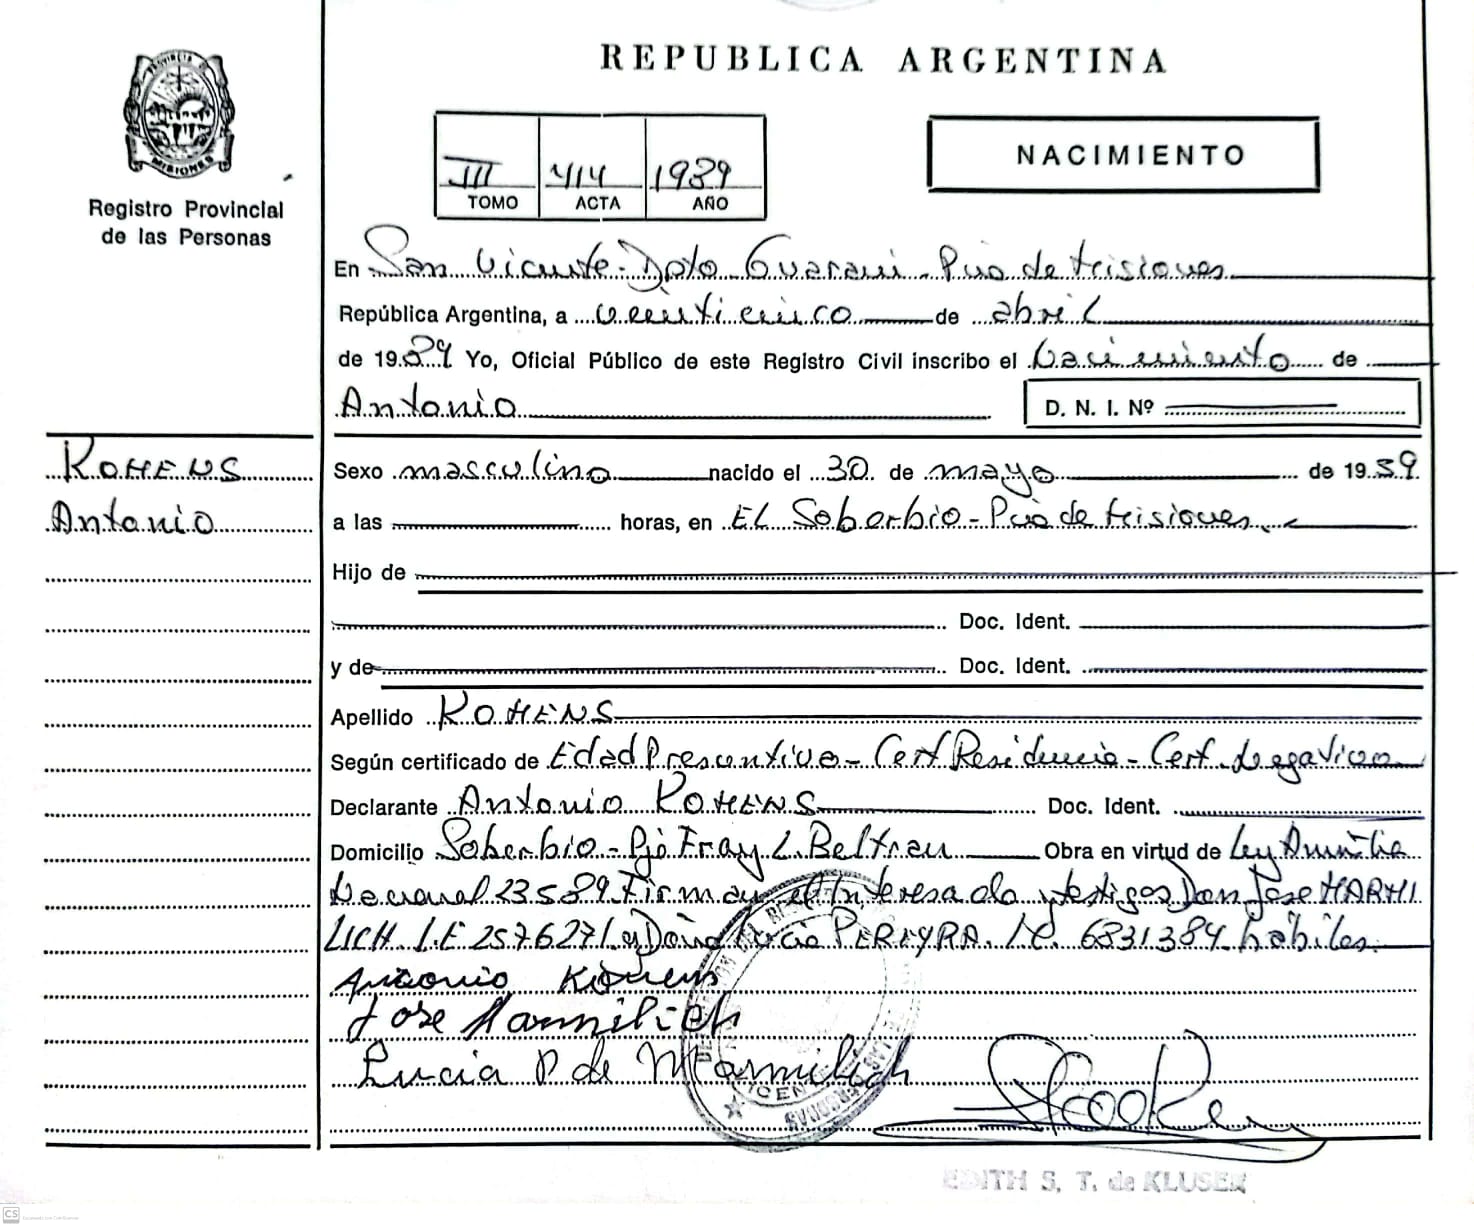 REPUBLICA ARGENTINA
PROVINCIA DE MISIONES
Registro Provincial
de las Personas
NACIMIENTO
III 414 1989
TOMO ACTA AÑO
En San Vicente - Dpto Guarani - Pcia de Misiones
República Argentina, a veinticinco de abril
de 1989 Yo, Oficial Público de este Registro Civil inscribo el Nacimiento de
Antonio D. N. I. Nº
ROHENS
Antonio
Sexo masculino nacido el 30 de mayo de 1939
a las horas, en EL Soberbio - Pcia de Misiones
Hijo de
Doc. Ident.
y de Doc. Ident.
Apellido ROHENS
Según certificado de Edad Presuntiva - Cert Residencia - Cert. Negativo
Declarante Antonio ROHENS Doc. Ident.
Domicilio Soberbio - Pje Fray L. Beltran Obra en virtud de Ley Amnistia
Nacional 23589. Firman el Interesado y testigos Don Jose MARMI
LICH. I.E 2576271 y Doña Lucia PEREYRA. I.C. 6831384 hábiles.
Antonio Rohens
Jose Marmilich
Lucia P de Marmilich
EDITH S. T. de KLUSER
CS